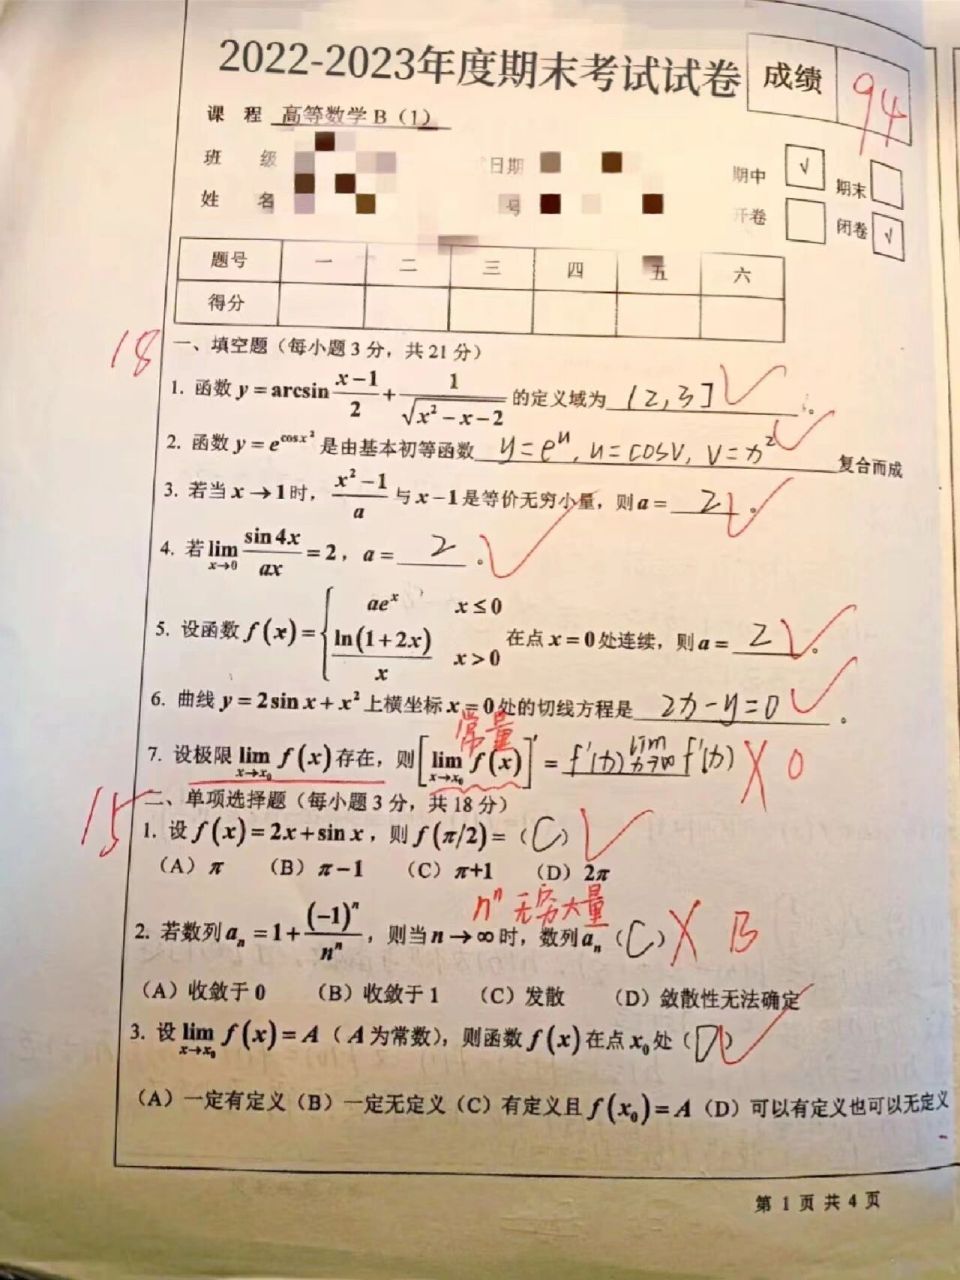 2022-2023年度期末考试试卷
成绩 94
课 程 高等数学B(1)
班 级 日期 期中 √ 期末
姓 名 号 开卷 闭卷 √
题号 一 二 三 四 五 六
得分
18
一、填空题(每小题3分,共21分)
1. 函数 y = arcsin (x-1)/2 + 1/√(x²-x-2) 的定义域为 (2,3] 。
2. 函数 y = e^(cos x²) 是由基本初等函数 y=e^u, u=cosv, v=x² 复合而成
3. 若当 x → 1时, (x²-1)/a 与 x-1是等价无穷小量,则a = 2 。
4. 若 lim x→0 sin 4x/ax = 2, a = 2 。
5. 设函数 f(x) = { ae^x x ≤ 0 ln(1+2x)/x x > 0 在点 x = 0处连续,则a = 2 。
6. 曲线 y = 2sin x + x² 上横坐标 x = 0处的切线方程是 2x-y=0 。
常量
7. 设极限 lim x→x₀ f(x) 存在,则 [lim x→x₀ f(x)]' = f'(x) lim x→x₀ f'(x) X 0
15
二、单项选择题(每小题3分,共18分)
1. 设 f(x) = 2x + sin x,则 f(π/2) = (C)
(A) π (B) π-1 (C) π+1 (D) 2π
n^n 无穷大量
2. 若数列 aₙ = 1 + (-1)^n/n^n ,则当 n → ∞ 时,数列 aₙ (C) X B
(A)收敛于 0 (B)收敛于 1 (C)发散 (D)敛散性无法确定
3. 设 lim x→x₀ f(x) = A ( A 为常数),则函数 f(x) 在点 x₀ 处 (D)
(A)一定有定义(B)一定无定义(C)有定义且 f(x₀) = A (D)可以有定义也可以无定义
第 1 页 共 4 页